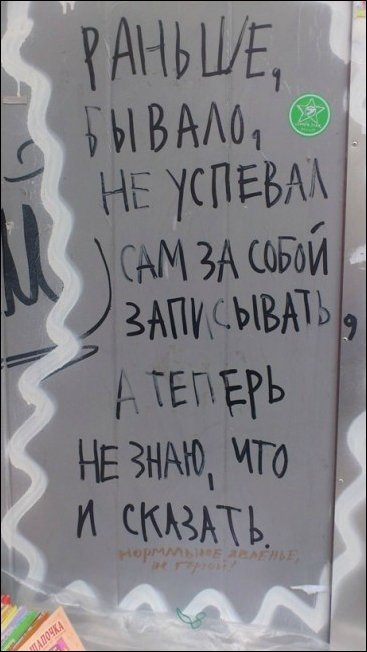 РАНЬШЕ,
БЫВАЛО,
НЕ УСПЕВАЛ
САМ ЗА СОБОЙ
ЗАПИСЫВАТЬ,
А ТЕПЕРЬ
НЕ ЗНАЮ, ЧТО
И СКАЗАТЬ.
НОРМАЛЬНОЕ ЯВЛЕНЬЕ,